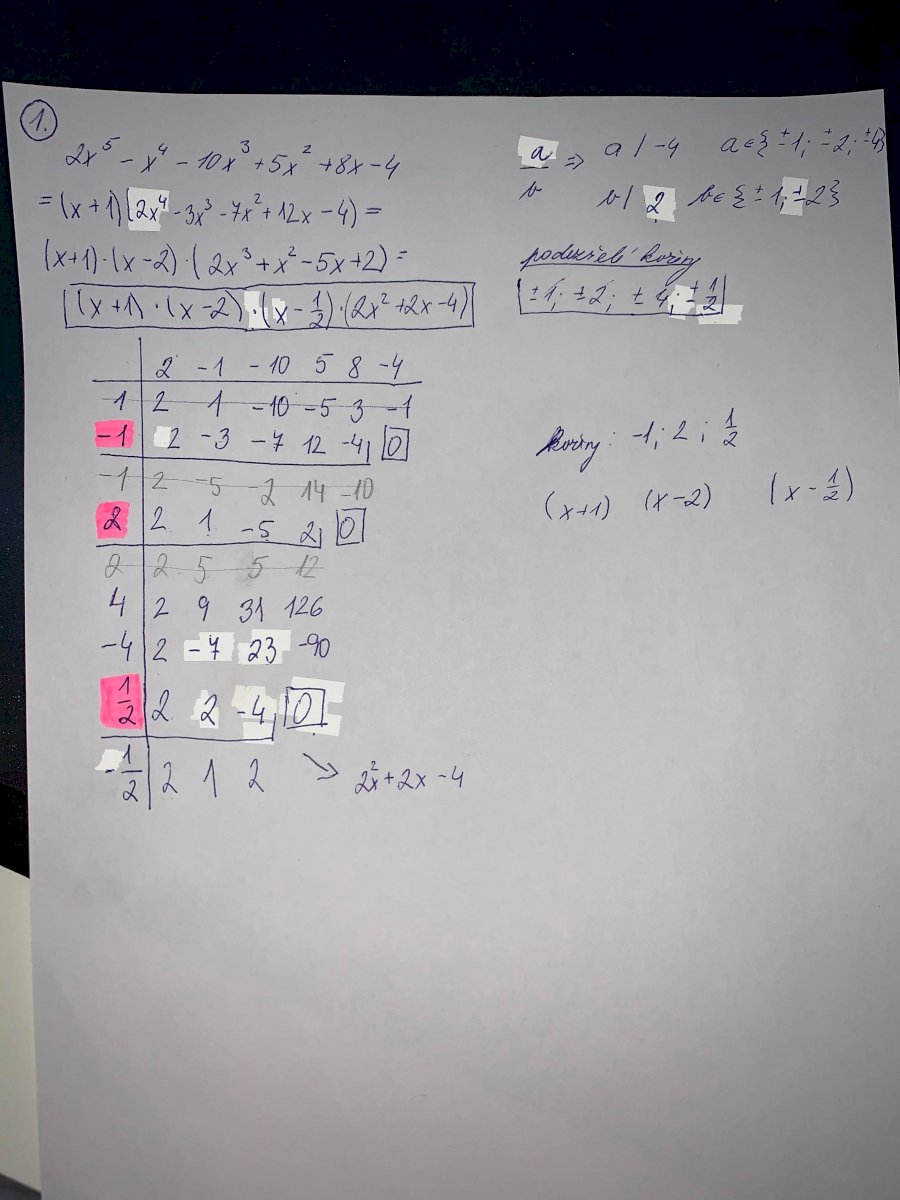 1.
2x⁵ - x⁴ - 10x³ + 5x² + 8x - 4
= (x+1)(2x⁴ - 3x³ - 7x² + 12x - 4) =
(x+1)·(x-2)·(2x³ + x² - 5x + 2) =
(x+1)·(x-2)·(x - 1/2)·(2x² + 2x - 4)
a/b ⇒ a | -4 a∈{±1; ±2; ±4}
b | 2 b∈{±1; ±2}
podezřelí kořiny
±1; ±2; ±4; ±1/2
2 -1 -10 5 8 -4
1 2 1 -10 -5 3 -1
-1 2 -3 -7 12 -4 0
-1 2 -5 -2 14 -10
2 2 1 -5 2 0
2 2 5 5 12
4 2 9 31 126
-4 2 -7 23 -90
1/2 2 2 -4 0
-1/2 2 1 2 → 2x² + 2x - 4
kořiny: -1; 2; 1/2
(x+1) (x-2) (x - 1/2)